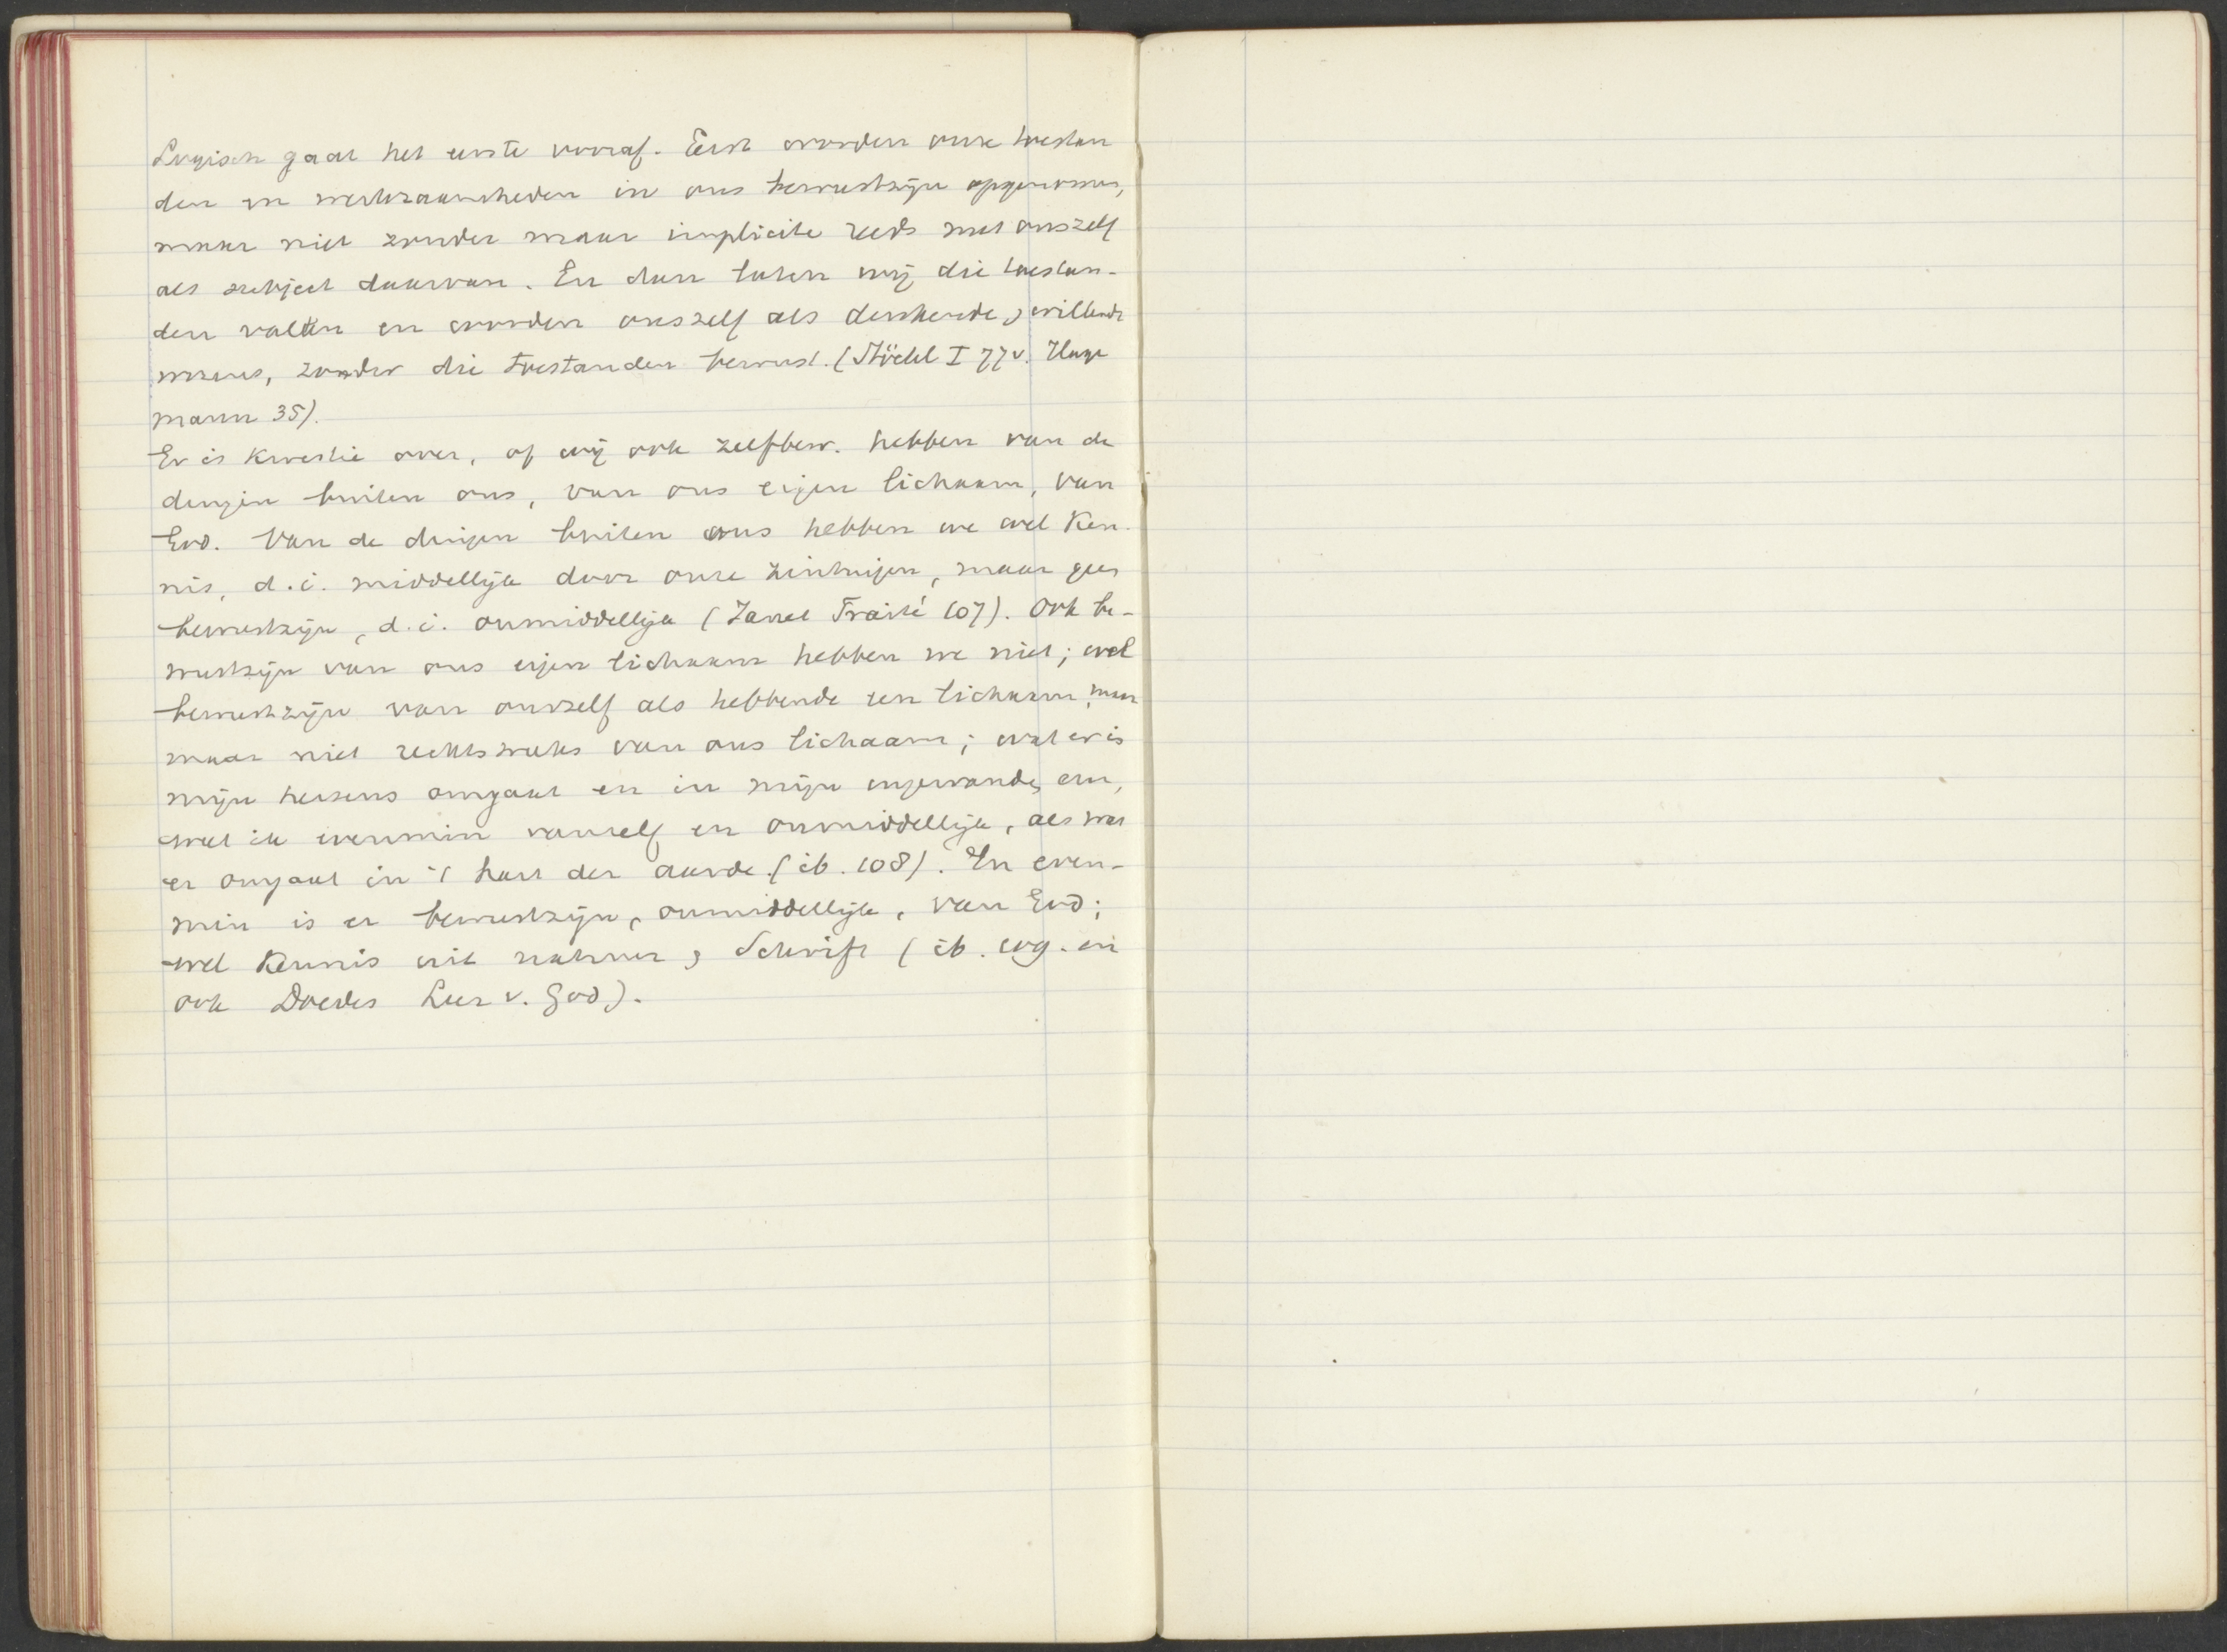 Logisch gaat het eerste vooraf. Eerst worden onze toestan
den en werkzaamheden in ons bewustzijn opgenomen,
maar niet zonder maar implicite reeds met onszelf
als subject daarvan. En dan laten wij die toestan-
den vallen en worden onszelf als denkende, willende
wezens, zonder die toestanden bewust. (Stöckl I 77v. Hage
mann 35).
Er is kwestie over, of wij ook zelfbew. hebben van de
dingen buiten ons, van ons eigen lichaam, van
God. Van de dingen buiten ons hebben we wel Ken-
nis, d.i. middellijk door onze zintuigen, maar geen
bewustzijn, d.i. onmiddellijk (Janet Traité 107). Ook be-
wustzijn van ons eigen lichaam hebben we niet; wel
bewustzijn van onszelf als hebbende een lichaam, maar
maar niet rechtstreeks van ons lichaam; wat er in
mijn hersens omgaat en in mijn ingewanden enz,
weet ik evenmin vanzelf en onmiddellijk, als wat
er omgaat in 't hart der aarde. (ib. 108). En even-
min is er bewustzijn, onmiddellijk, van God;
wel Kennis uit natuur & Schrift (ib. 109. en
ook Doedes Leer v. God).